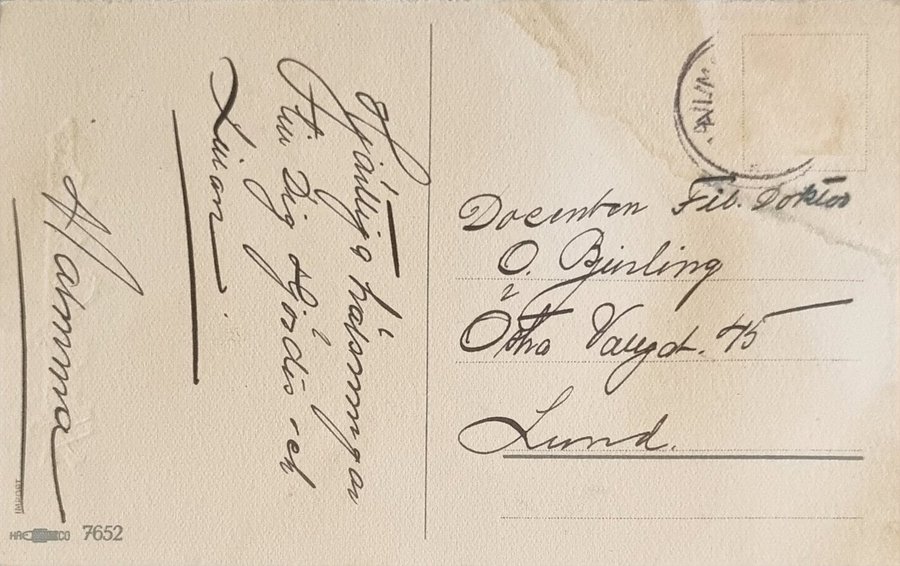 Hjärtliga hälsningar
till Dig Hjördis och
Mamma
Docenten Fil. Doktor
O. Bjurling
Östra Vallgat. 45
Lund.
IMPORT
HAECO 7652